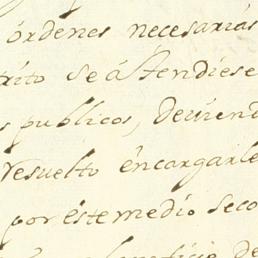 órdenes necesarias
rito se átendiese
s publicos, deviend
resuelto éncargarle
por éste medio seco